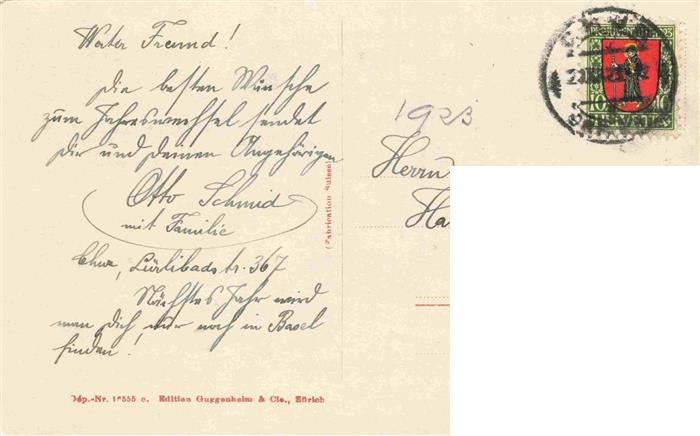 Werter Freund!
Die besten Wünsche
zum Jahreswechsel sendet
Dir und deinen Angehörigen
Otto Schmid
mit Familie
Chur, Lürlibadstr. 367
Nächstes Jahr wird
man Dich nur noch in Basel
finden!
Dép.-Nr. 16555 c. Edition Guggenheim & Cie., Zürich
(Fabrication Suisse)
1923
Herrn
Ha
PRO JUVENTUTE
10 10
HELVETIA